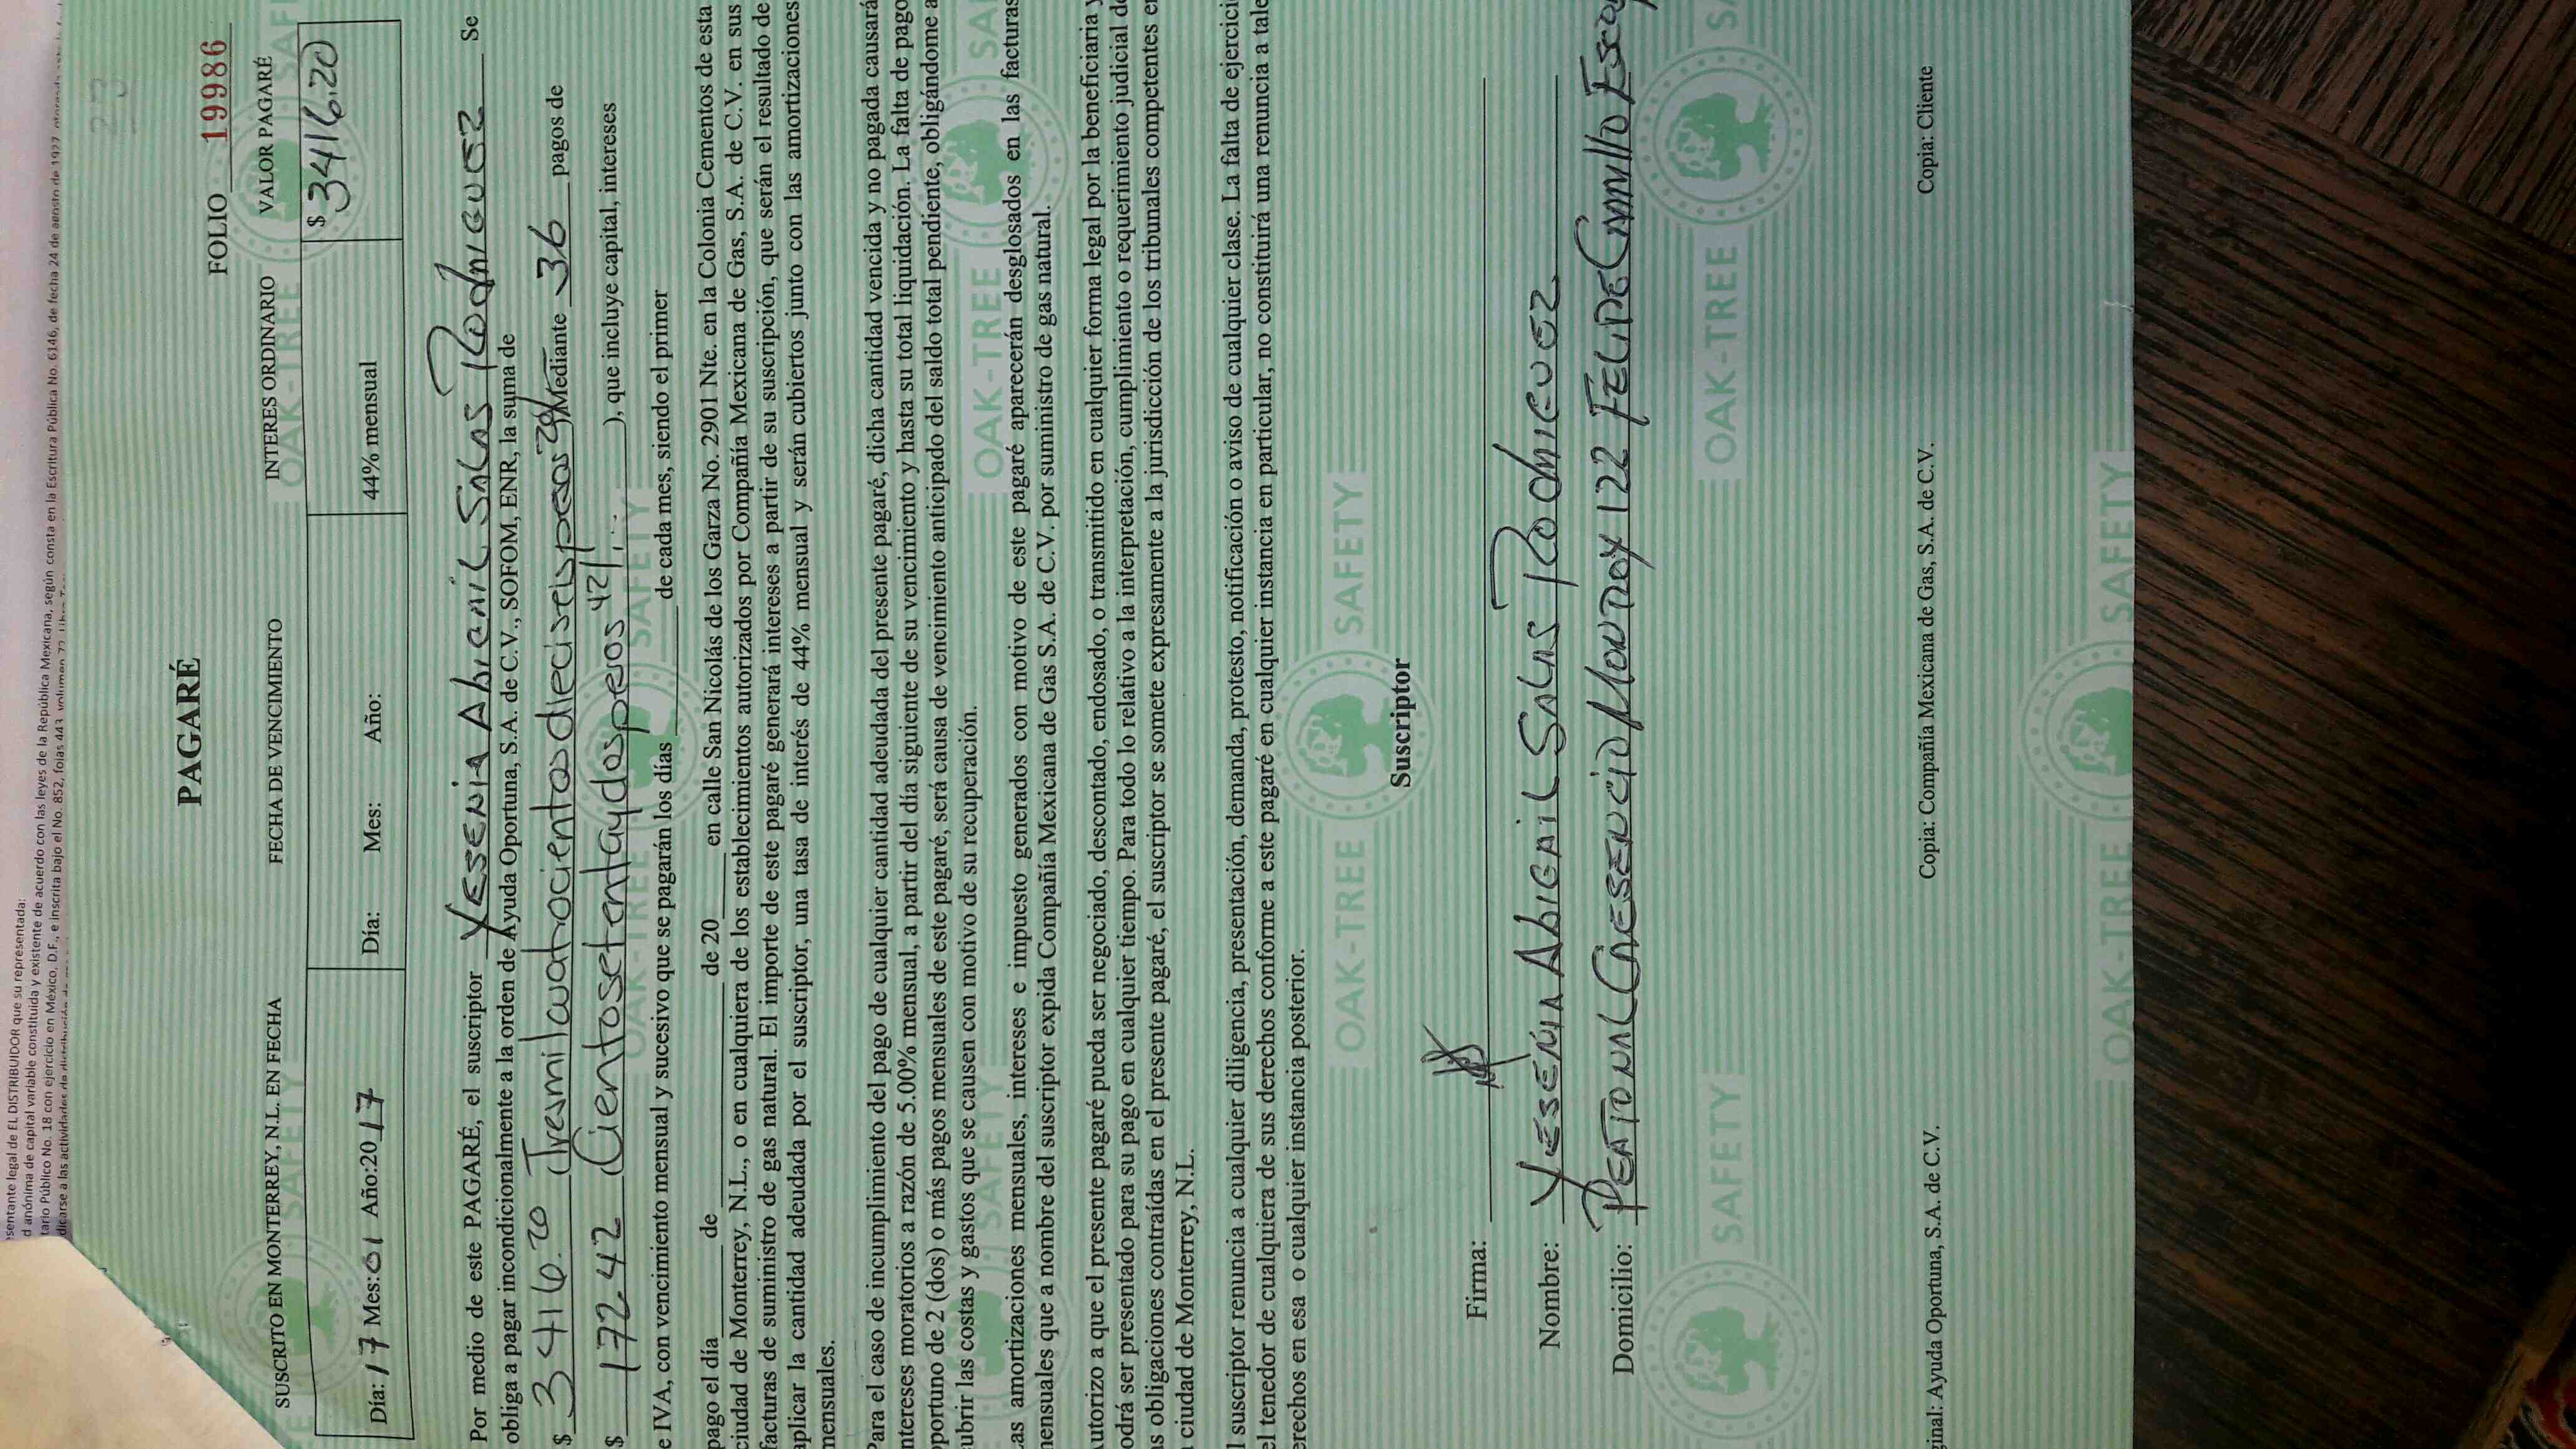 esentante legal de EL DISTRIBUIDOR que su representada:
d anónima de capital variable constituida y existente de acuerdo con las leyes de la República Mexicana, según consta en la Escritura Pública No. 6146, de fecha 24 de agosto de 1927
tario Público No. 18 con ejercicio en México, D.F., e inscrita bajo el No. 852, fojas 443 volumen 72
dicarse a las actividades de distribución de
23
PAGARÉ
FOLIO 19986
SUSCRITO EN MONTERREY, N.L. EN FECHA FECHA DE VENCIMIENTO INTERES ORDINARIO VALOR PAGARÉ
Día: 17 Mes: 01 Año:2017 Día: Mes: Año: 44% mensual $ 3416.20
Por medio de este PAGARÉ, el suscriptor Yesenia Abigail Salas Rodriguez Se
obliga a pagar incondicionalmente a la orden de Ayuda Oportuna, S.A. de C.V., SOFOM, ENR, la suma de
$ 3416.20 (Tresmilcuatrocientosdieciseispesos 20/ Mediante 36 pagos de
$ 172.42 (Cientosetentaydospesos 42/ ), que incluye capital, intereses
e IVA, con vencimiento mensual y sucesivo que se pagarán los días ____ de cada mes, siendo el primer
pago el día ____ de ____ de 20 ____ en calle San Nicolás de los Garza No. 2901 Nte. en la Colonia Cementos de esta
ciudad de Monterrey, N.L., o en cualquiera de los establecimientos autorizados por Compañía Mexicana de Gas, S.A. de C.V. en sus
facturas de suministro de gas natural. El importe de este pagaré generará intereses a partir de su suscripción, que serán el resultado de
aplicar la cantidad adeudada por el suscriptor, una tasa de interés de 44% mensual y serán cubiertos junto con las amortizaciones
mensuales.
Para el caso de incumplimiento del pago de cualquier cantidad adeudada del presente pagaré, dicha cantidad vencida y no pagada causará
ntereses moratorios a razón de 5.00% mensual, a partir del día siguiente de su vencimiento y hasta su total liquidación. La falta de pago
portuno de 2 (dos) o más pagos mensuales de este pagaré, será causa de vencimiento anticipado del saldo total pendiente, obligándome a
ubrir las costas y gastos que se causen con motivo de su recuperación.
as amortizaciones mensuales, intereses e impuesto generados con motivo de este pagaré aparecerán desglosados en las facturas
nensuales que a nombre del suscriptor expida Compañía Mexicana de Gas S.A. de C.V. por suministro de gas natural.
utorizo a que el presente pagaré pueda ser negociado, descontado, endosado, o transmitido en cualquier forma legal por la beneficiaria y
odrá ser presentado para su pago en cualquier tiempo. Para todo lo relativo a la interpretación, cumplimiento o requerimiento judicial de
as obligaciones contraídas en el presente pagaré, el suscriptor se somete expresamente a la jurisdicción de los tribunales competentes en
a ciudad de Monterrey, N.L.
l suscriptor renuncia a cualquier diligencia, presentación, demanda, protesto, notificación o aviso de cualquier clase. La falta de ejercici
el tenedor de cualquiera de sus derechos conforme a este pagaré en cualquier instancia en particular, no constituirá una renuncia a tale
erechos en esa o cualquier instancia posterior.
Suscriptor
Firma:
Nombre: Yesenia Abigail Salas Rodriguez
Domicilio: Peatonal Cresencio Monrroy 122 Felipe Carrillo
ginal: Ayuda Oportuna, S.A. de C.V. Copia: Compañía Mexicana de Gas, S.A. de C.V. Copia: Cliente
OAK-TREE SAFETY